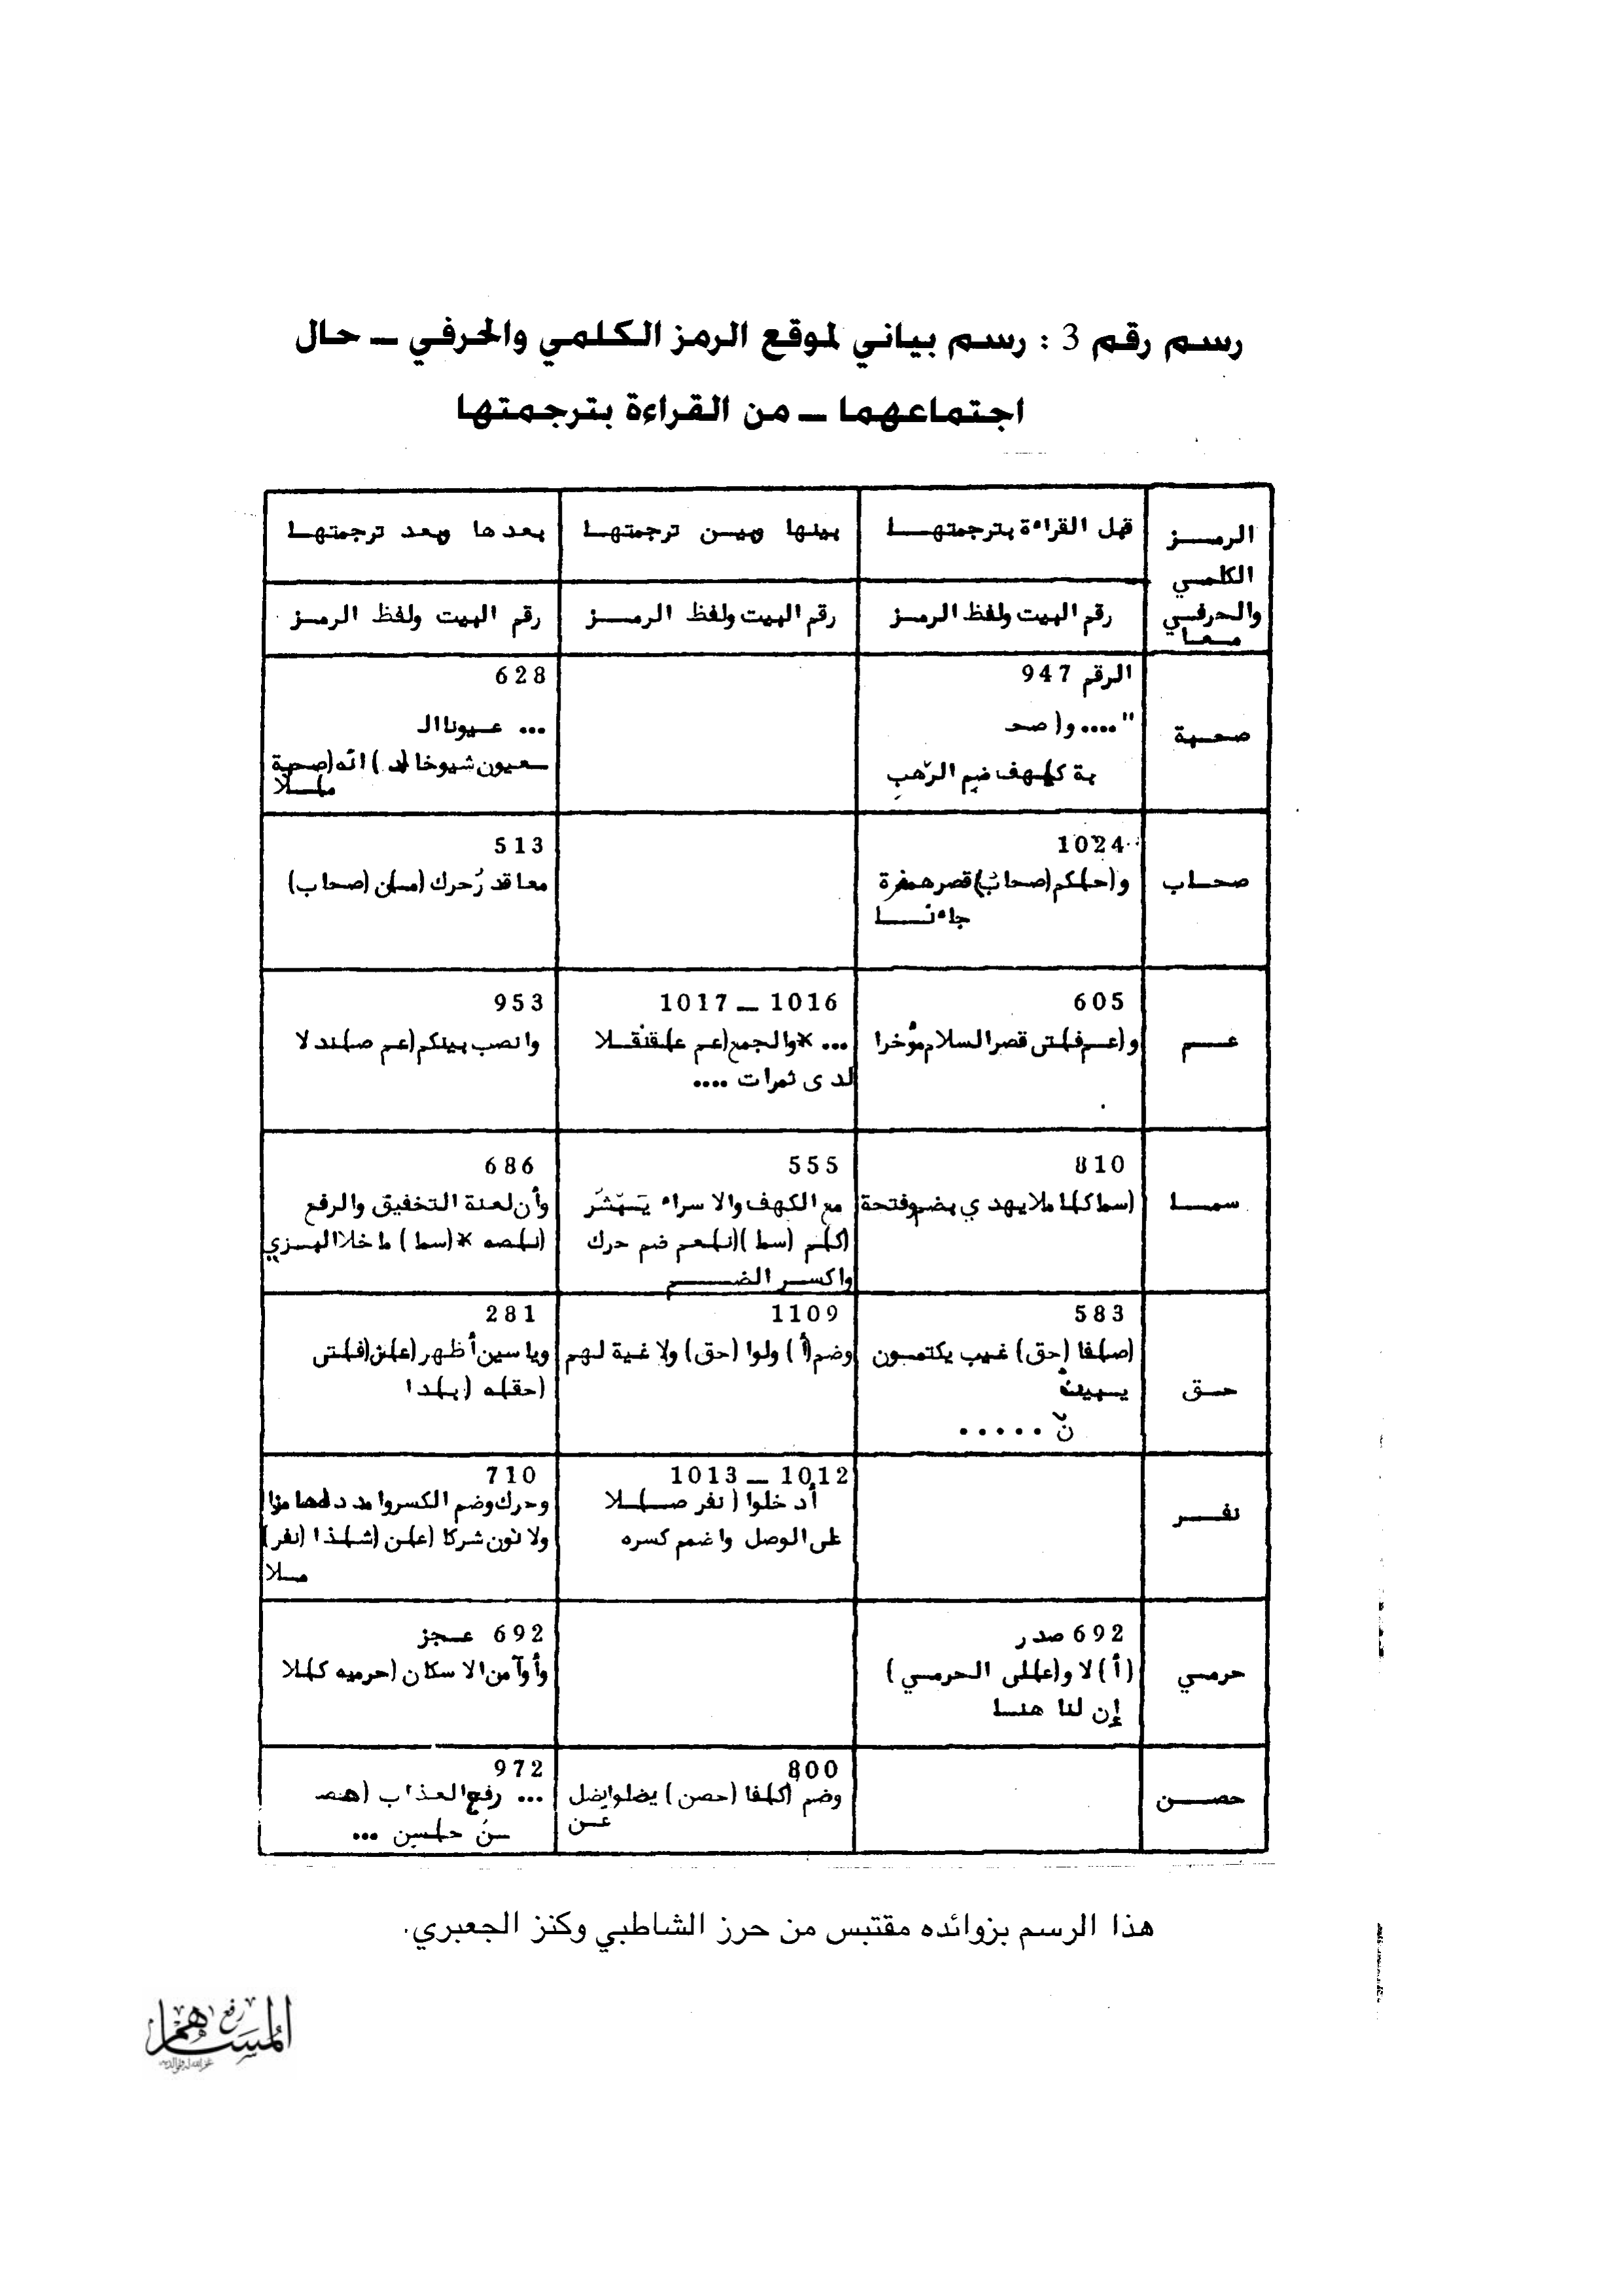 رسم رقم 3 : رسم بياني لموقع الرمز الكلمي والحرفي ـ حال
اجتماعهما ـ من القراءة بترجمتها
الرمز الكلمي والحرفي معا
قبل القراءة بترجمتها
بينها وبين ترجمتها
بعدها وبعد ترجمتها
رقم البيت ولفظ الرمز
رقم البيت ولفظ الرمز
رقم البيت ولفظ الرمز
صحبة
الرقم 947
" .... و(صحـ
ـبة كـ)ـهف ضم الرّهب
628
... عيونا الـ
ـعيون شيوخا (د) انه (صحبة
مـ)ـلا
صحاب
1024
و(حـ)ـكم (صحاب) قصر همزة
جاءنا
513
معا قدر حرك (مـ)ـن (صحاب)
عم
605
و(عم فـ)ـتى قصر السلام مؤخرا
1016 ـ 1017
... * والجمع (عم عـ)ـقنقلا
لدى ثمرات ....
953
وانصب بينكم (عم صـ)ـندلا
سما
810
(سما كـ)ـما مـ)ـلا يهدي بضم وفتحة
555
مع الكهف والاسراء يَبْشُر
(كـ)ـم (سما) (نـ)ـعم ضم حرك
واكسر الضم
686
وأن لعنة التخفيف والرفع
(نـ)ـصه * (سما) ما خلا البزي
حق
583
(صـ)ـفا (حق) غيب يكتمون
يبينـ
ـنّ .....
1109
وضم (أ) ولوا (حق) ولا غية لهم
281
ويا سين أظهر (عـ)ـن (فـ)ـتى
(حقـ)ـه (بـ)ـدا
نفر
1012 ـ 1013
أدخلوا (نفر صـ)ـلا
على الوصل واضمم كسره
710
وحرك وضم الكسر وامدده هامزا
ولا نون شركا (عـ)ـن (شـ)ـذا (نفر)
مـلا
حرمي
692 صدر
(أ) لا و(عـ)ـلى الحرمي)
إن لنا هنا
692 عجز
وأوأمن الاسكان (حرميه كـ)ـلا
حصن
800
وضم (كـ)ـفا (حصن) يضلوا يضل
عن
972
... رفع العذاب (حصـ
ـنٌ حـ)ـسن ...
هذا الرسم بزوائده مقتبس من حرز الشاطبي وكنز الجعبري.